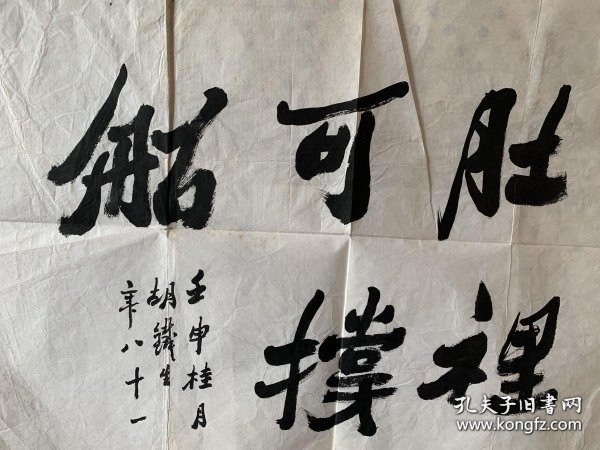 肚裡
可撑
船
壬申桂月
胡鐵生
年八十一
孔夫子旧書网
www.kongfz.com